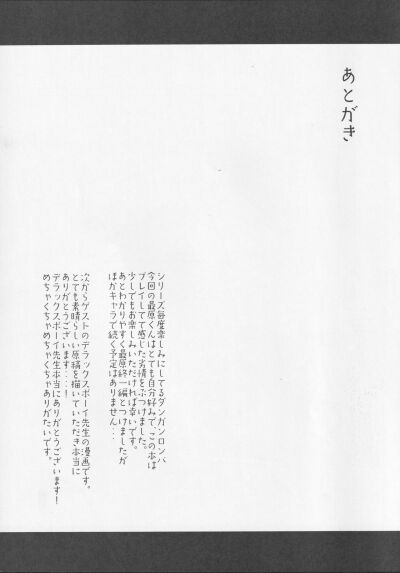 あとがき
シリーズ毎度楽しみにしてるダンガンロンパ
今回の最原くんはとても自分好みで、この本は
プレイしてて感じた劣情をぶつけました。
少しでもお楽しみいただければ幸いです。
あとわかりやすく最原終一編とつけましたが
ほかキャラで続く予定はありません…
次からゲストのデラックスボーイ先生の漫画です。
とても素晴らしい原稿を描いていただき本当に
ありがとうございます…!
デラックスボーイ先生本当にありがとうございます!
めちゃくちゃめちゃくちゃありがたいです。